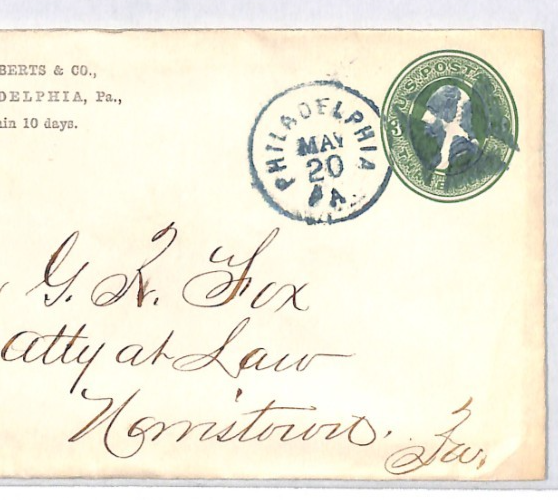 BERTS & CO.,
DELPHIA, Pa.,
in 10 days.
PHILADELPHIA
MAY
20
PA.
U.S. POSTAGE
3
THREE
G. R. Fox
Atty at Law
Norristown.
Pa.